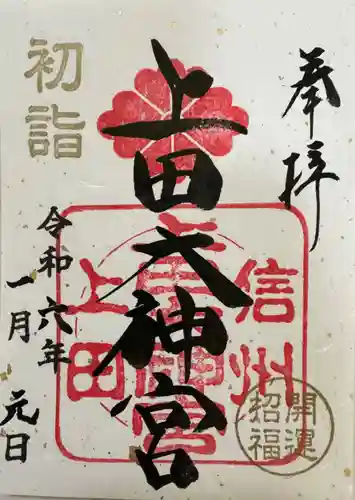 奉拝
開運
招福
信州
上田
上田大神宮
初詣
令和六年
一月元日